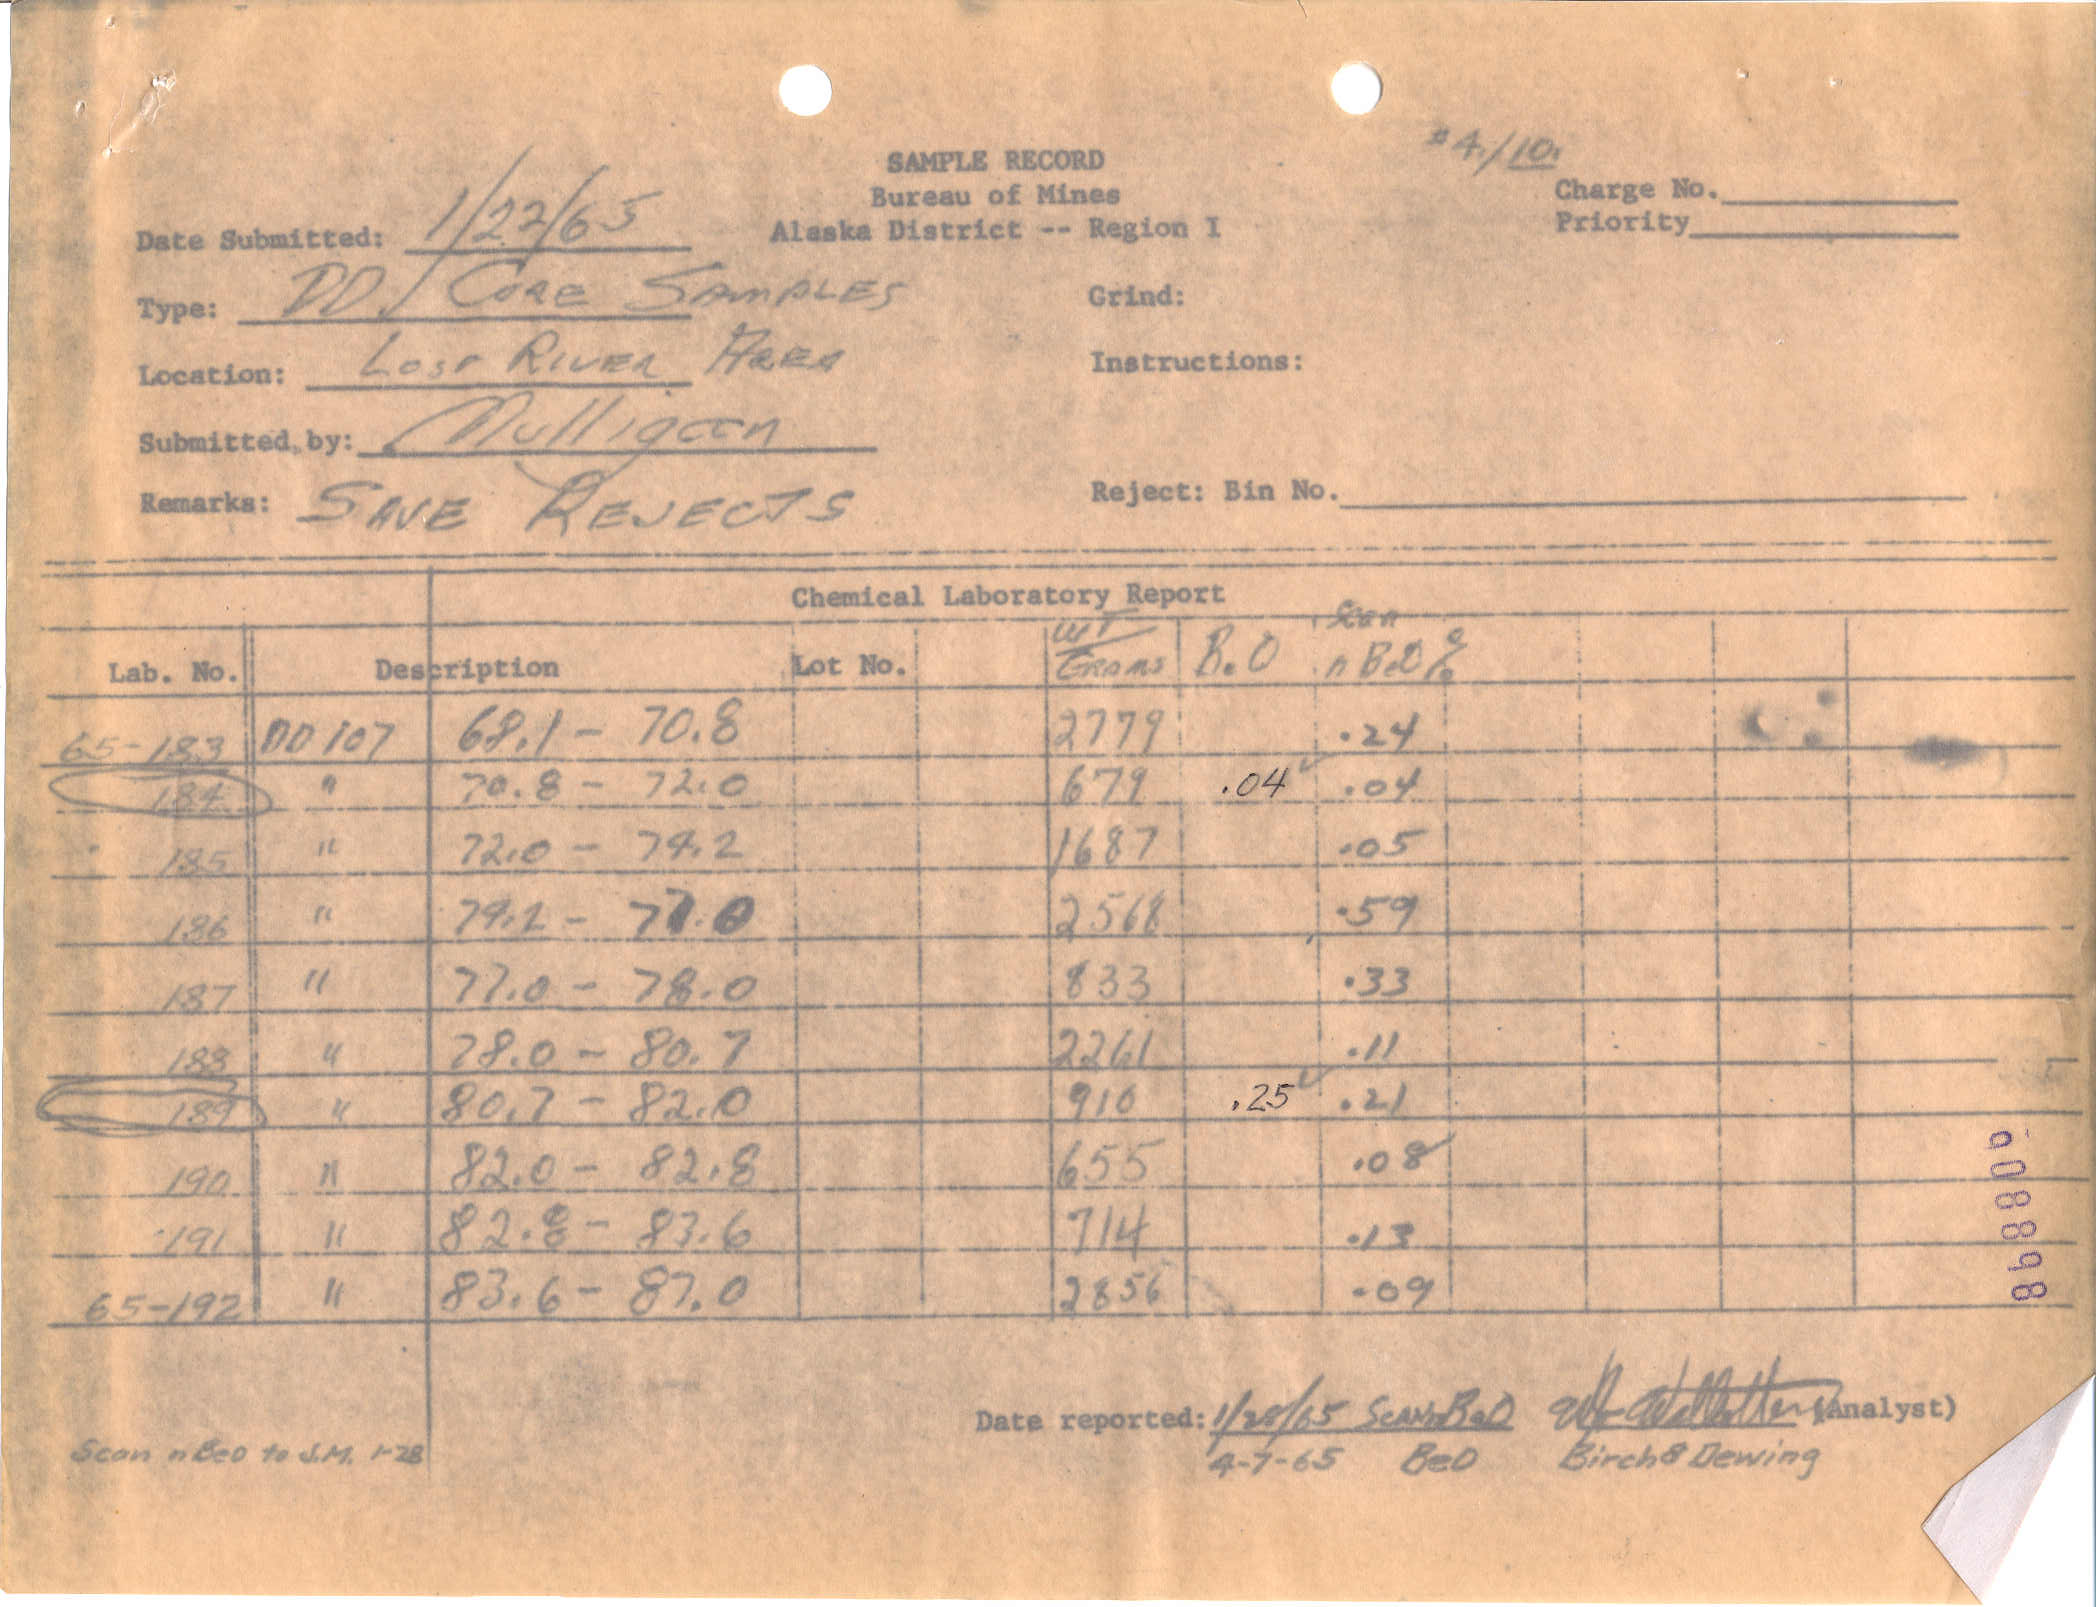 #4/10.
SAMPLE RECORD
Bureau of Mines
Alaska District -- Region I
Charge No.
Priority
Date Submitted: 1/22/65
Type: DD. CORE SAMPLES
Grind:
Location: LOST RIVER AREA
Instructions:
Submitted by: Mulligan
Remarks: SAVE REJECTS
Reject: Bin No.
Chemical Laboratory Report
Lab. No. Description Lot No. WT GRAMS BeO Scan n BeO %
65-183 DD 107 68.1 - 70.8 2779 .24
184 " 70.8 - 72.0 679 .04 ✓ .04
185 " 72.0 - 74.2 1687 .05
186 " 74.2 - 77.0 2568 .59
187 " 77.0 - 78.0 833 .33
188 " 78.0 - 80.7 2261 .11
189 " 80.7 - 82.0 910 .25 ✓ .21
190 " 82.0 - 82.8 655 .08
191 " 82.8 - 83.6 714 .13
65-192 " 83.6 - 87.0 2856 .09
Date reported: 1/28/65 SCAN n BeO (Analyst)
Scan n BeO to J.M. 1-28
4-7-65 BeO Birch & Dewing